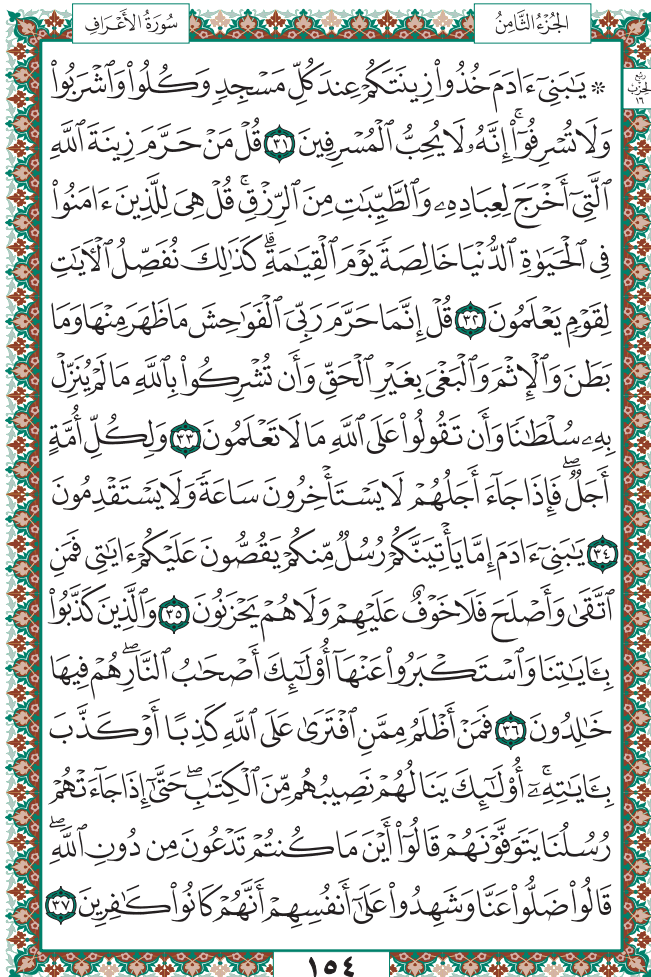 الجُزْءُ الثَّامِنُ
سُورَةُ الأَعْرَافِ
ربع
الحزب
١٦
۞ يَٰبَنِىٓ ءَادَمَ خُذُوا۟ زِينَتَكُمْ عِندَ كُلِّ مَسْجِدٍ وَكُلُوا۟ وَٱشْرَبُوا۟
وَلَا تُسْرِفُوٓا۟ ۚ إِنَّهُۥ لَا يُحِبُّ ٱلْمُسْرِفِينَ ٣١ قُلْ مَنْ حَرَّمَ زِينَةَ ٱللَّهِ
ٱلَّتِىٓ أَخْرَجَ لِعِبَادِهِۦ وَٱلطَّيِّبَٰتِ مِنَ ٱلرِّزْقِ ۚ قُلْ هِىَ لِلَّذِينَ ءَامَنُوا۟
فِى ٱلْحَيَوٰةِ ٱلدُّنْيَا خَالِصَةً يَوْمَ ٱلْقِيَٰمَةِ ۗ كَذَٰلِكَ نُفَصِّلُ ٱلْءَايَٰتِ
لِقَوْمٍ يَعْلَمُونَ ٣٢ قُلْ إِنَّمَا حَرَّمَ رَبِّىَ ٱلْفَوَٰحِشَ مَا ظَهَرَ مِنْهَا وَمَا
بَطَنَ وَٱلْإِثْمَ وَٱلْبَغْىَ بِغَيْرِ ٱلْحَقِّ وَأَن تُشْرِكُوا۟ بِٱللَّهِ مَا لَمْ يُنَزِّلْ
بِهِۦ سُلْطَٰنًا وَأَن تَقُولُوا۟ عَلَى ٱللَّهِ مَا لَا تَعْلَمُونَ ٣٣ وَلِكُلِّ أُمَّةٍ
أَجَلٌ ۖ فَإِذَا جَآءَ أَجَلُهُمْ لَا يَسْتَأْخِرُونَ سَاعَةً وَلَا يَسْتَقْدِمُونَ
٣٤ يَٰبَنِىٓ ءَادَمَ إِمَّا يَأْتِيَنَّكُمْ رُسُلٌ مِّنكُمْ يَقُصُّونَ عَلَيْكُمْ ءَايَٰتِى فَمَنِ
ٱتَّقَىٰ وَأَصْلَحَ فَلَا خَوْفٌ عَلَيْهِمْ وَلَا هُمْ يَحْزَنُونَ ٣٥ وَٱلَّذِينَ كَذَّبُوا۟
بِـَٔايَٰتِنَا وَٱسْتَكْبَرُوا۟ عَنْهَآ أُو۟لَٰٓئِكَ أَصْحَٰبُ ٱلنَّارِ ۖ هُمْ فِيهَا
خَٰلِدُونَ ٣٦ فَمَنْ أَظْلَمُ مِمَّنِ ٱفْتَرَىٰ عَلَى ٱللَّهِ كَذِبًا أَوْ كَذَّبَ
بِـَٔايَٰتِهِۦٓ ۚ أُو۟لَٰٓئِكَ يَنَالُهُمْ نَصِيبُهُم مِّنَ ٱلْكِتَٰبِ ۖ حَتَّىٰٓ إِذَا جَآءَتْهُمْ
رُسُلُنَا يَتَوَفَّوْنَهُمْ قَالُوٓا۟ أَيْنَ مَا كُنتُمْ تَدْعُونَ مِن دُونِ ٱللَّهِ ۖ
قَالُوا۟ ضَلُّوا۟ عَنَّا وَشَهِدُوا۟ عَلَىٰٓ أَنفُسِهِمْ أَنَّهُمْ كَانُوا۟ كَٰفِرِينَ ٣٧
١٥٤